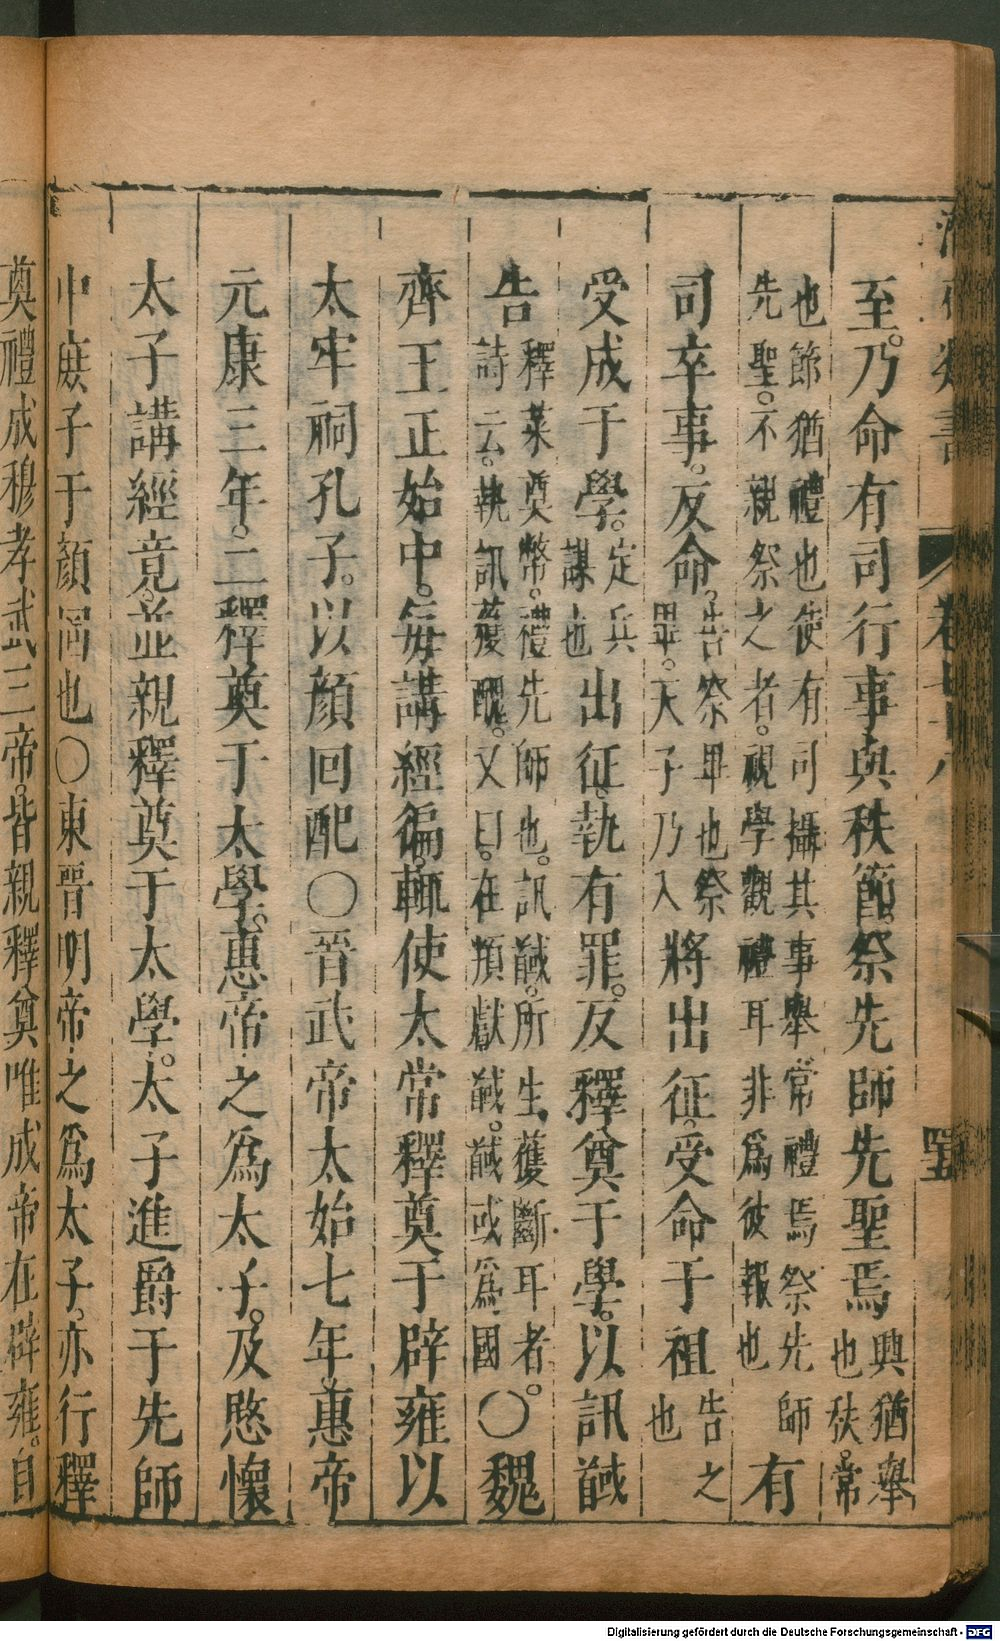 類書
卷
至。乃命有司行事興秩節。祭先師先聖焉興猶舉也秩。常
也節猶禮也使有司攝其事舉常禮焉祭先師先聖。不親祭之者。視學觀禮耳非爲彼報也有
司卒事。反命。告祭畢也祭畢。天子乃入將出征。受命于祖告之也
受成于學。定兵謀也出征。執有罪。反釋奠于學。以訊馘
告釋菜奠幣。禮先師也。訊馘。所生獲斷耳者。詩云。執訊獲醜。又曰。在頖獻馘。馘或爲國○魏
齊王正始中。每講經徧。輒使太常釋奠于辟雍以
太牢祠孔子。以顏回配○晉武帝太始七年。惠帝
元康三年。二釋奠于太學。惠帝之爲太子。及愍懷
太子講經竟。並親釋奠于太學。太子進爵于先師
中庶子于顏回也○東晉明帝之爲太子。亦行釋
奠禮成穆孝武三帝。皆親釋奠唯成帝在辟雍。自
Digitalisierung gefördert durch die Deutsche Forschungsgemeinschaft - DFG